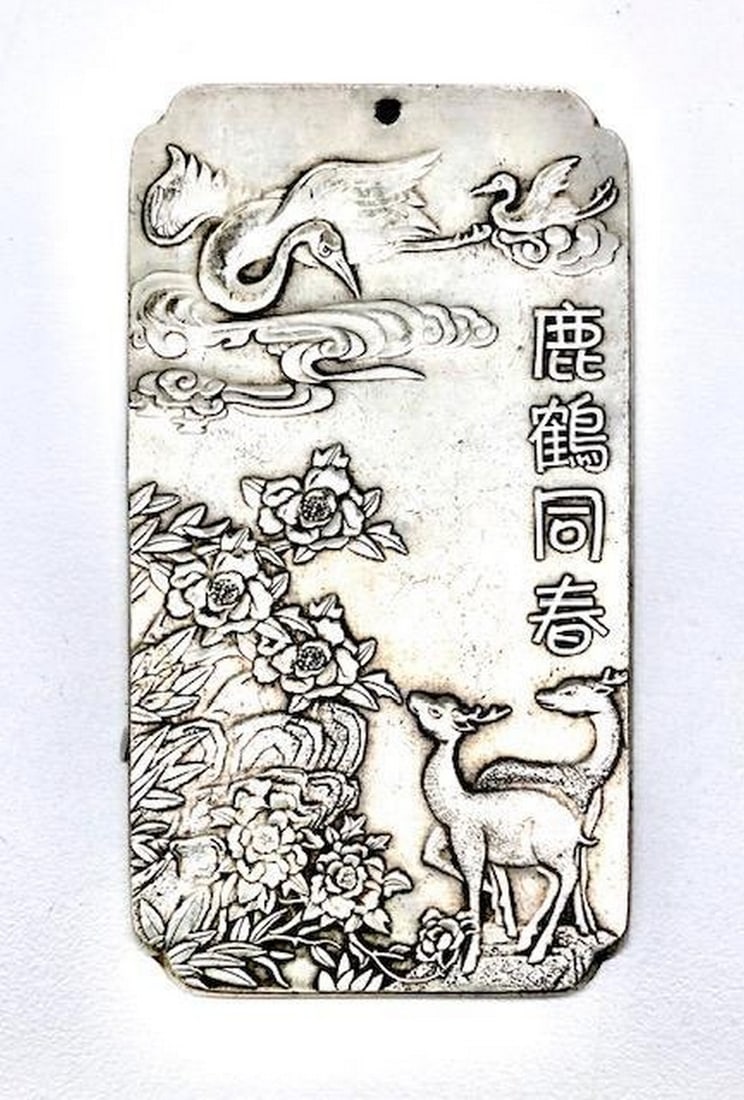 鹿鶴同春